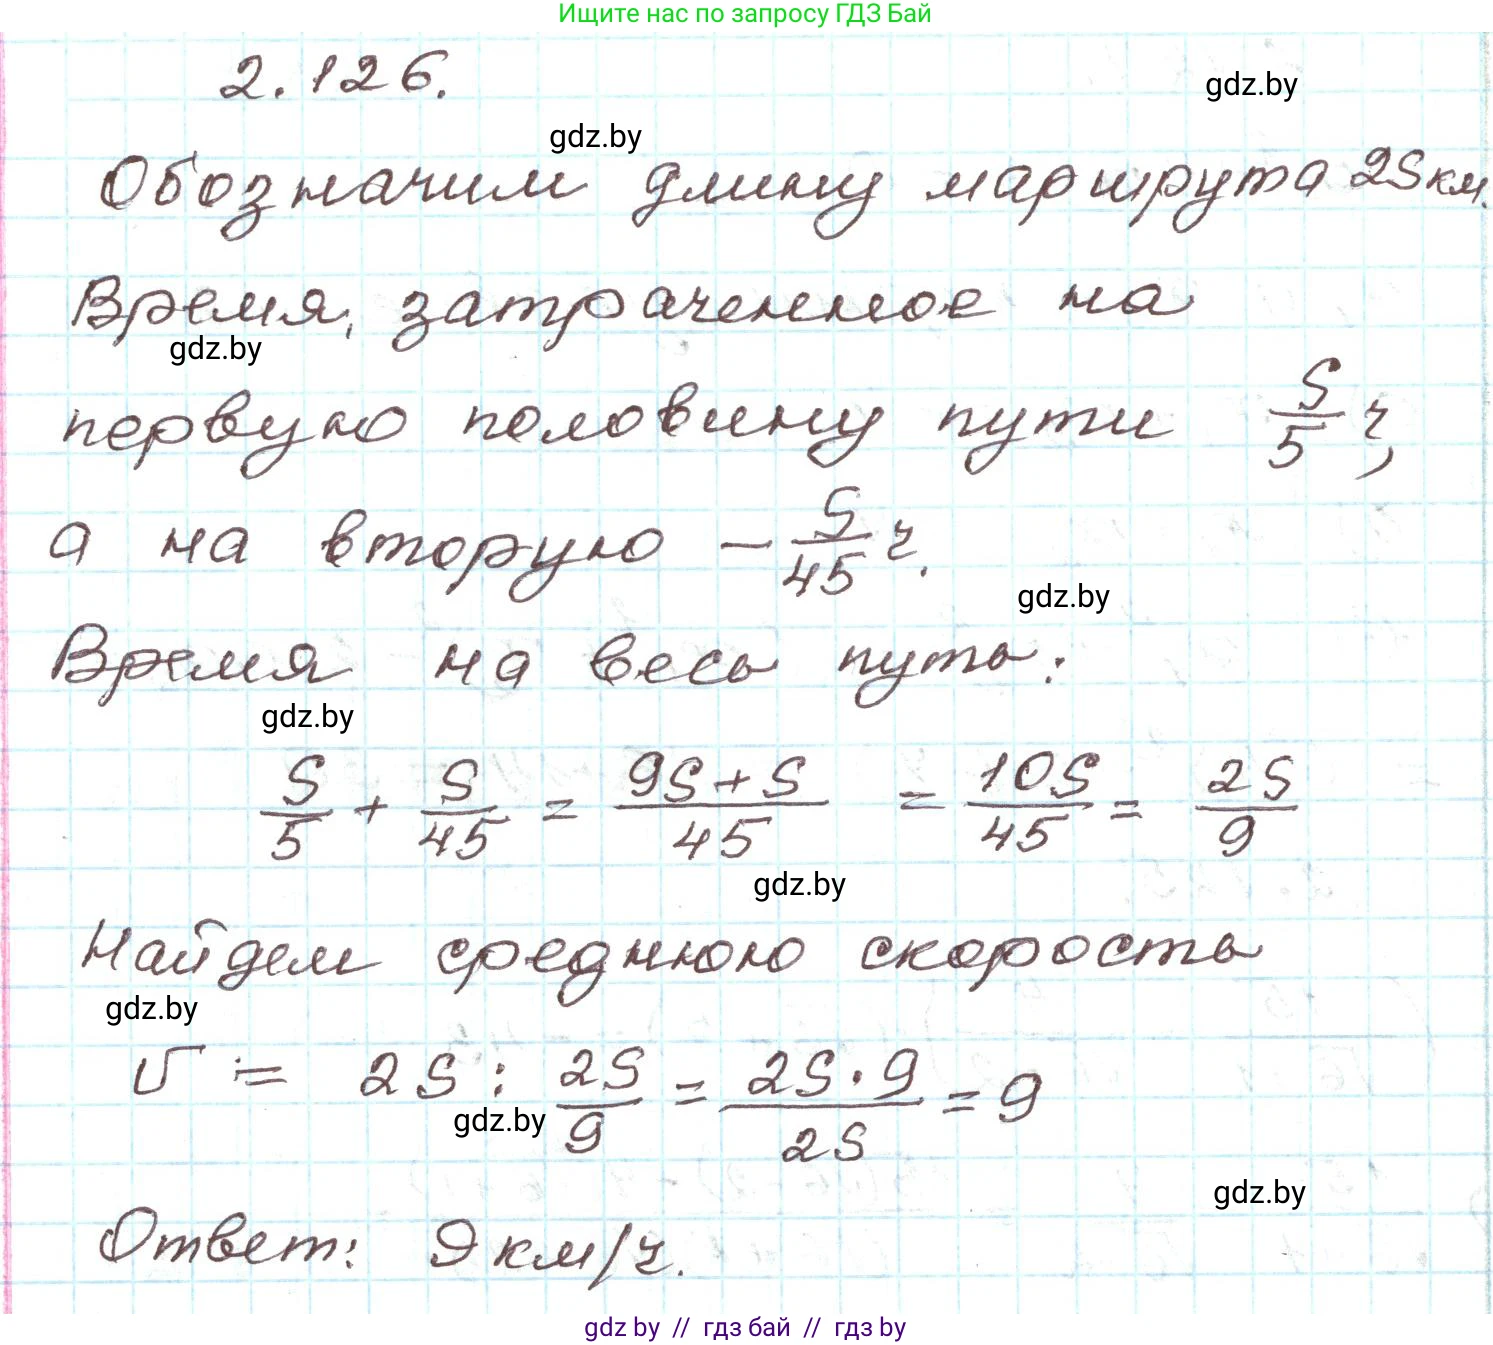 Ищите нас по запросу ГДЗ Бай
2.126.
gdz.by
gdz.by
Обозначим длину маршрута 2S км.
Время, затраченное на
gdz.by
первую половину пути S/5 ч,
а на вторую – S/45 ч.
gdz.by
Время на весь путь:
gdz.by
S/5 + S/45 = 9S+S/45 = 10S/45 = 2S/9
gdz.by
Найдем среднюю скорость
gdz.by
v = 2S : 2S/9 = 2S·9/2S = 9
gdz.by
gdz.by
Ответ: 9 км/ч.
gdz by // гдз бай // гдз by